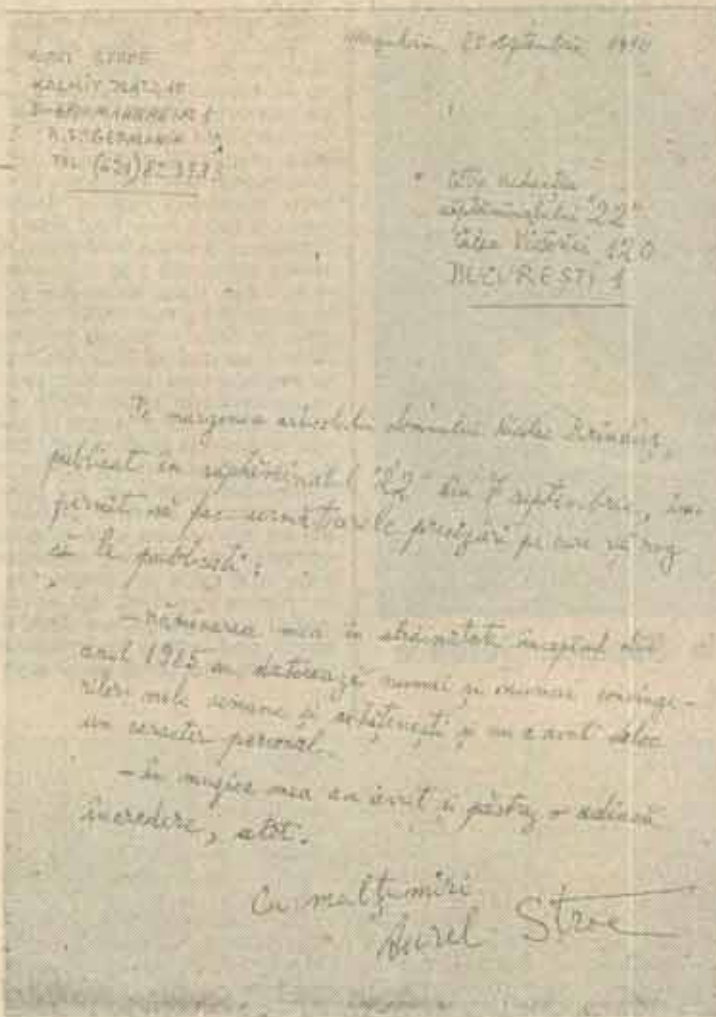 AUREL STROE
KALMIT PLATZ
MANNHEIM 1
R.F. GERMANIA
TEL (621)
septembrie 1990
Către redacția
săptămînalului "22"
Calea Victoriei 120
BUCUREȘTI 1
Pe marginea articolului domnului Nicolae Brînduș,
publicat în săptămînalul "22" din 7 septembrie, îmi
permit să fac următoarele precizări pe care vă rog
să le publicați:
- rămînerea mea în străinătate începînd din
anul 1985 se datorează numai și numai convinge-
rilor mele umane și cetățenești și nu a avut deloc
un caracter personal.
- în muzica mea am avut și păstrez o adîncă
încredere, atît.
Cu mulțumiri
Aurel Stroe